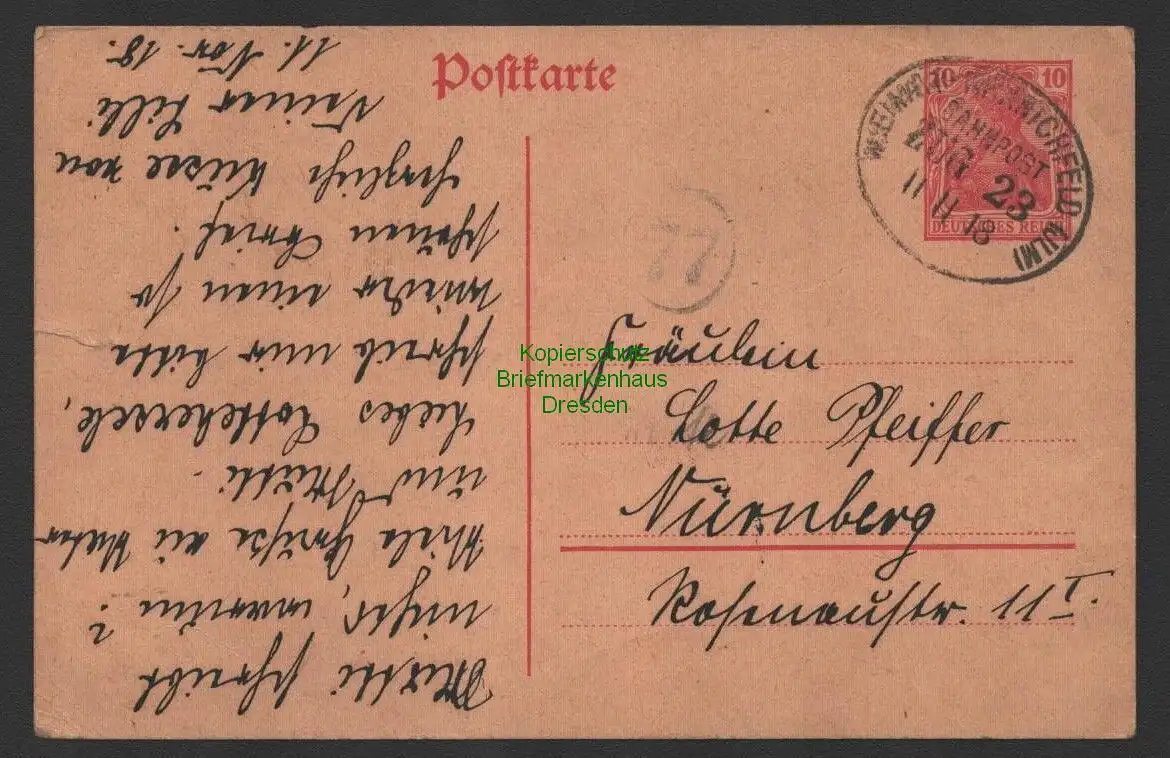 Postkarte
10 10
DEUTSCHES REICH
BAHNPOST
ZUG 23
11 11 18
(ULM)
77
Fräulein
Lotte Pfeiffer
Nürnberg
Rosenaustr. 11 I.
Kopierschutz
Briefmarkenhaus
Dresden
Mutti schreibt
nicht, warum?
Viele Grüße an Vater
und Mutti.
Liebes
schreib mir bitte
wieder einen so
schönen Brief.
Herzliche Küsse von
Deiner Lilli
11. Nov. 18.